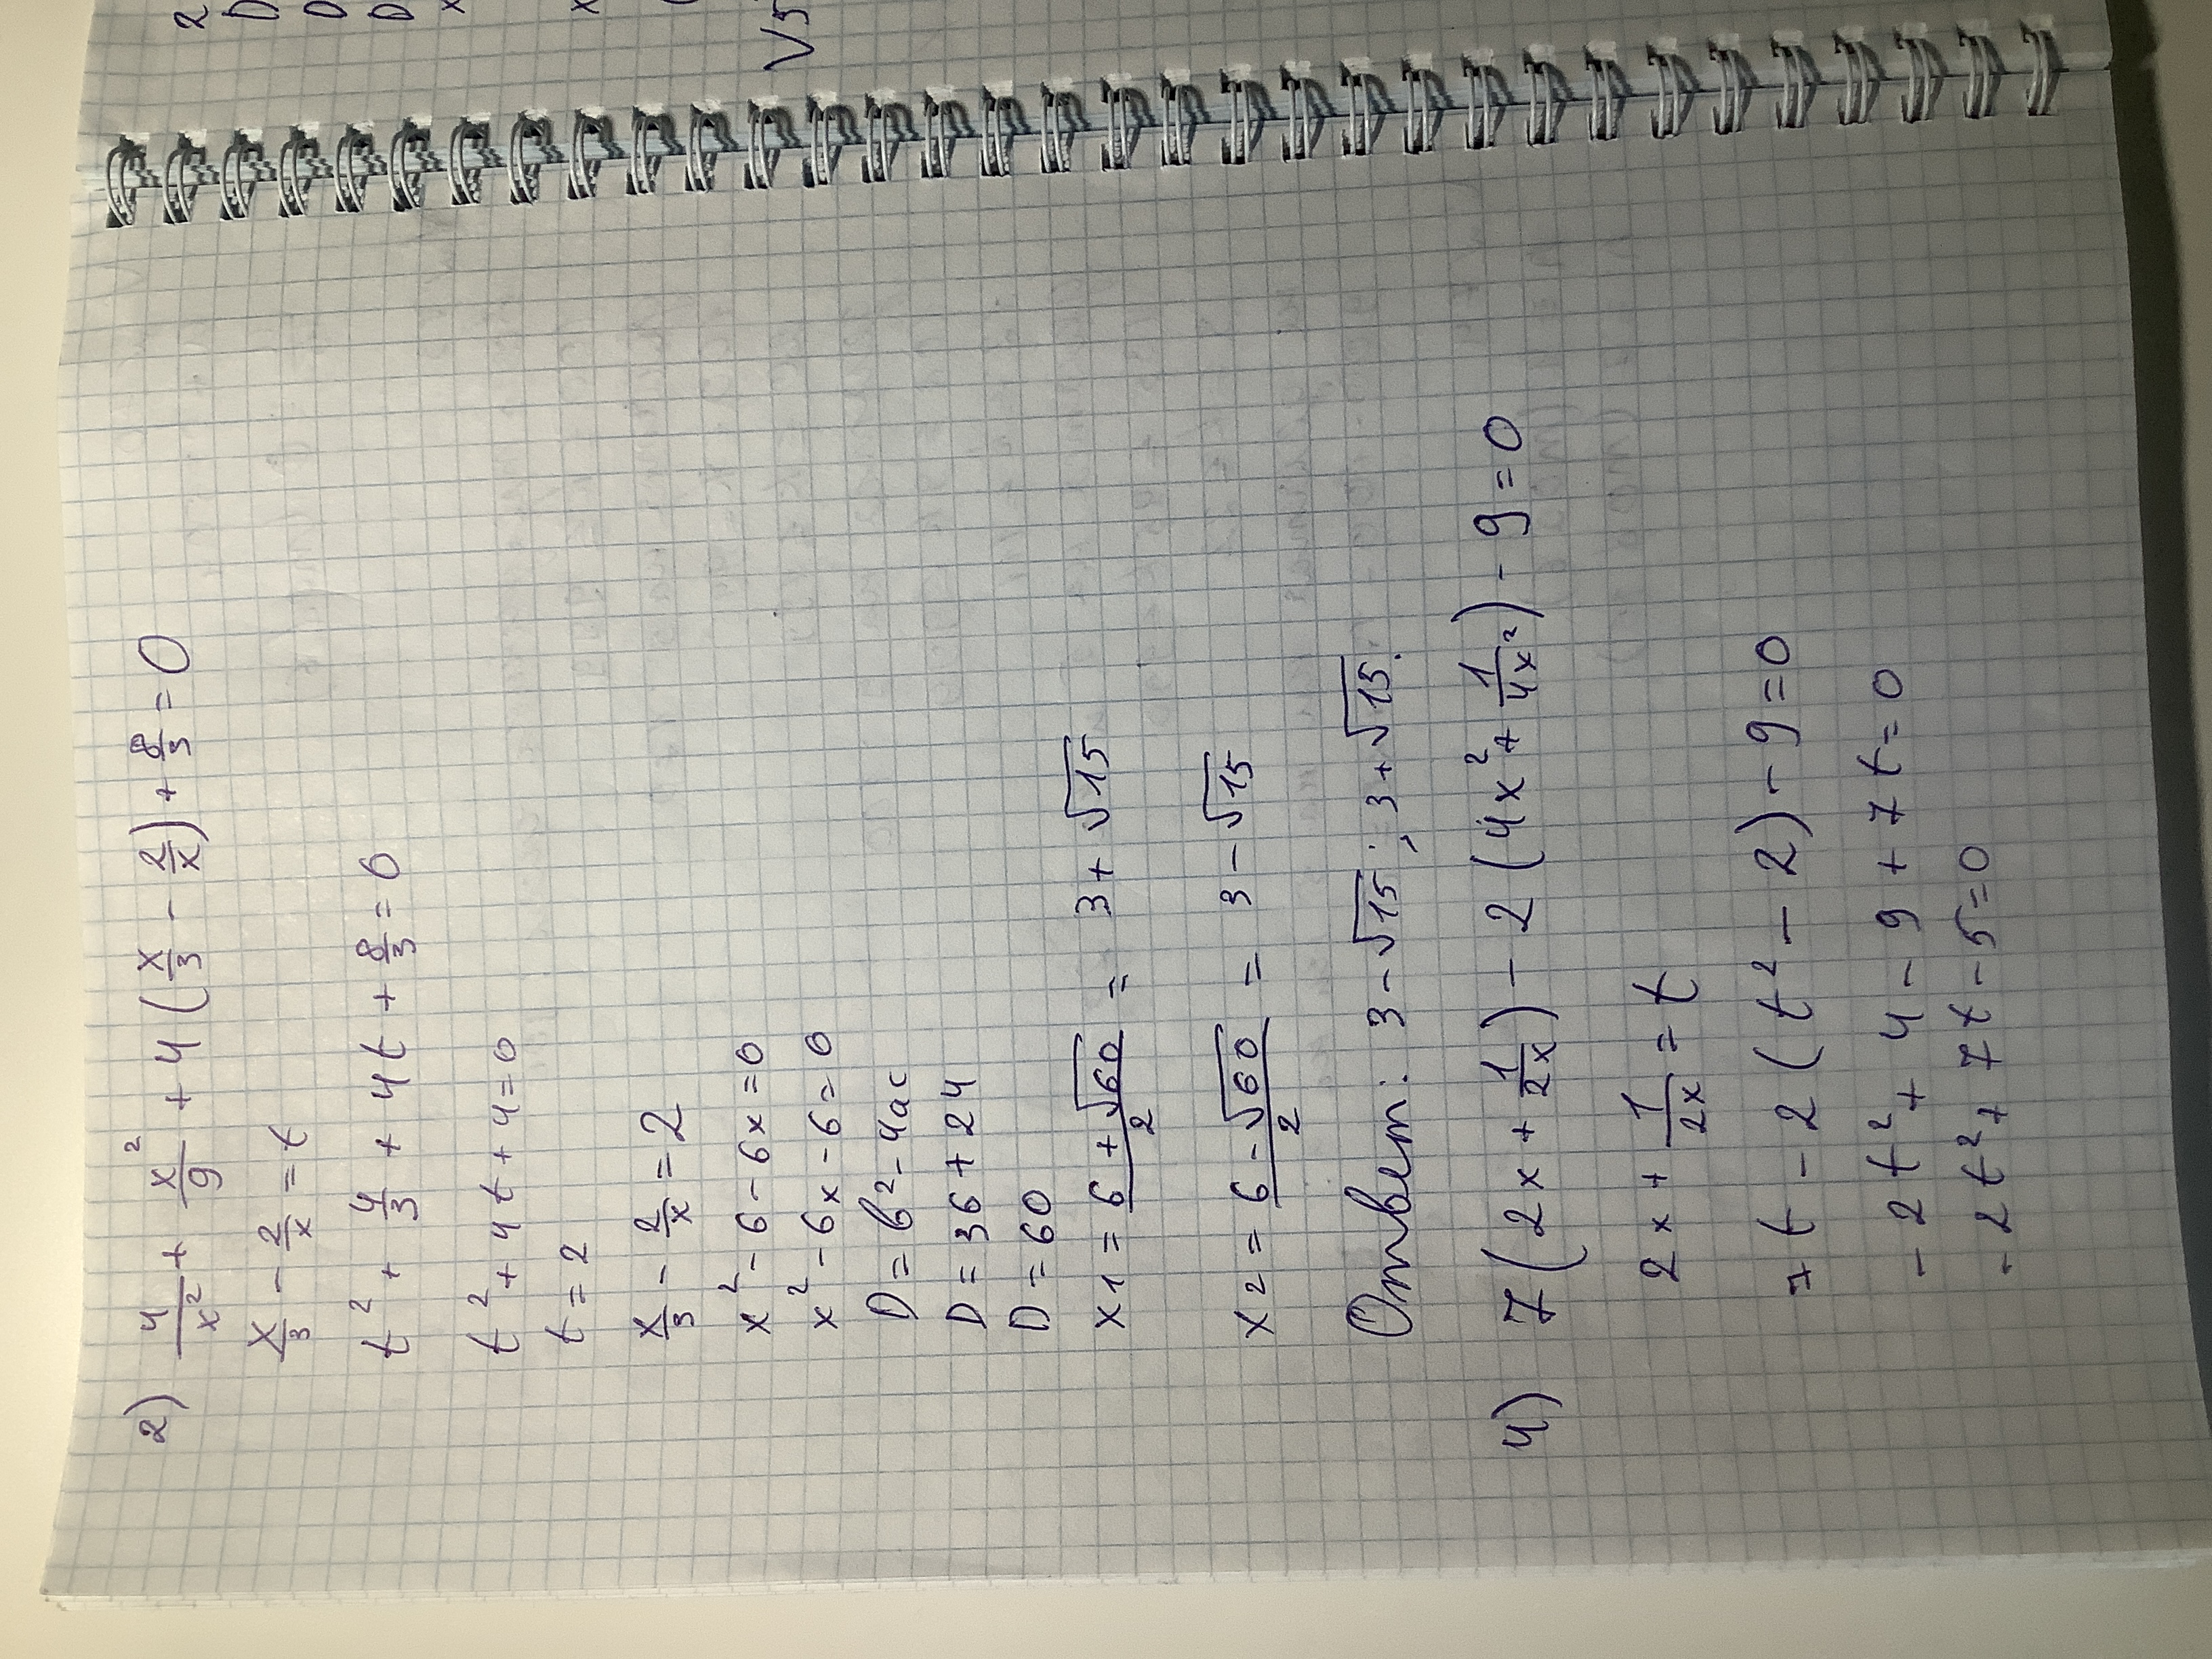 2) 4/x² + x²/9 + 4(x/3 - 2/x) + 8/3 = 0
x/3 - 2/x = t
t² + 4/3 + 4t + 8/3 = 0
t² + 4t + 4 = 0
t = 2
x/3 - 2/x = 2
x² - 6 - 6x = 0
x² - 6x - 6 = 0
D = b² - 4ac
D = 36 + 24
D = 60
x1 = (6 + √60)/2 = 3 + √15
x2 = (6 - √60)/2 = 3 - √15
Ответ: 3 - √15; 3 + √15.
4) 7(2x + 1/2x) - 2(4x² + 1/4x²) - 9 = 0
2x + 1/2x = t
7t - 2(t² - 2) - 9 = 0
-2t² + 4 - 9 + 7t = 0
-2t² + 7t - 5 = 0
2
D
D
D
x
x